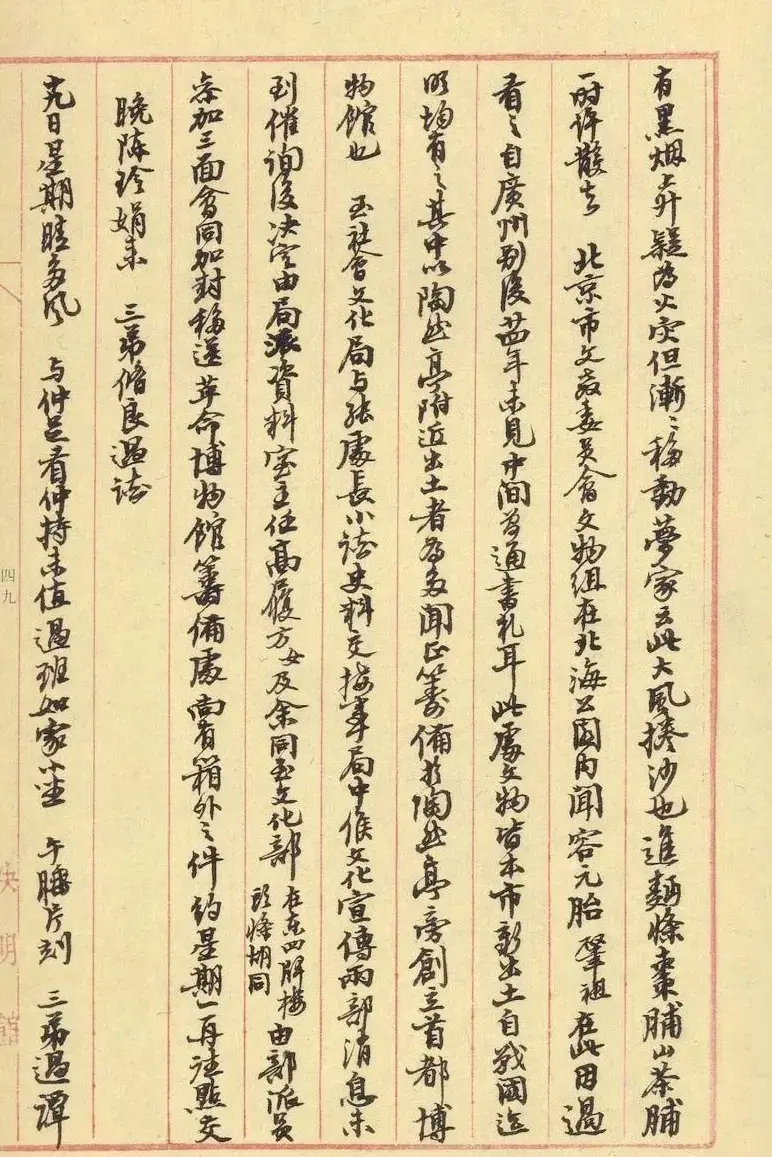 有黑烟上升疑为火灾但漸〻移動夢家云此大風捲沙也進麵條棗脯山茶脯
一时许散去　北京市文教委员會文物组在北海公园内闻容元胎肇祖在此因過
看之自廣州别後廿四年未見中间为通書札耳此處文物皆本市新出土自戰國迄
明均有之其中以陶然亭附近出土者为多闻正籌備於陶然亭旁創立首都博
物館也　至社會文化局与张處長小谈史料交接事局中候文化宣傳兩部消息未
到催询後决定由局派資料室主任高履方女及余同至文化部在东四牌楼头條胡同由部派员
参加三面會同加封移送革命博物館籌備處尚有箱外之件约星期一再往點交
晚陈玲娟来　三弟脩良過谈
十九日星期晴多风　与仲足看仲持未值過班如家小坐　午睡片刻　三弟過譚
四九
快明館